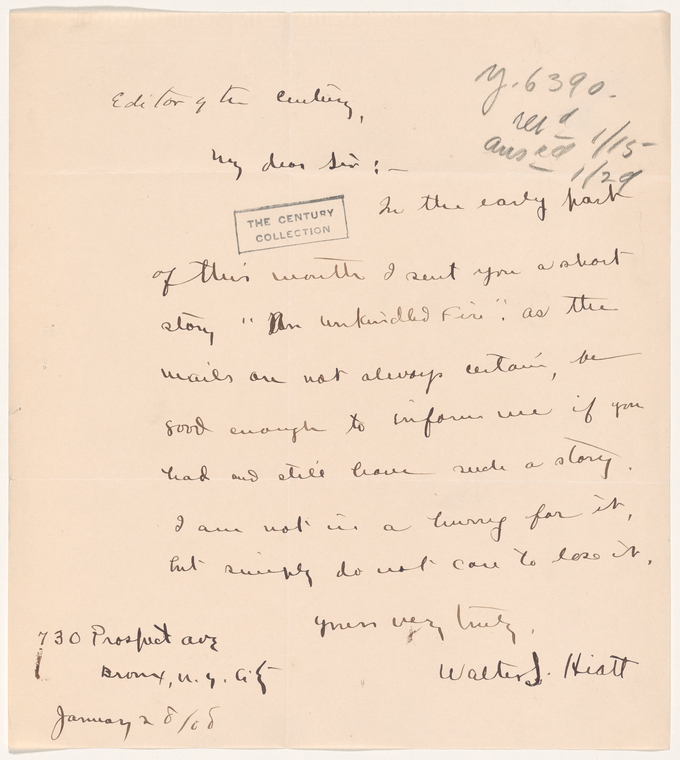 Editor of the Century,
y. 6390.
ret'd 1/15
ans'ed 1/29
My dear Sir :—
THE CENTURY
COLLECTION
In the early part
of this month I sent you a short
story "An Unkindled Fire". as the
mails are not always certain, be
good enough to inform me if you
had and still have such a story.
I am not in a hurry for it,
but simply do not care to lose it.
yours very truly,
Walter J. Hiatt
730 Prospect ave
Bronx, N.Y. City
January 28/08